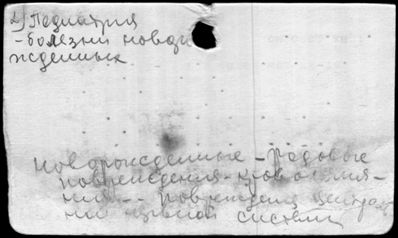 2) Педиатрия
- болезни новоро
жденных
Новорожденные - родовые
повреждения - кровоизлия-
ния - - повреждения центр
нервной системы